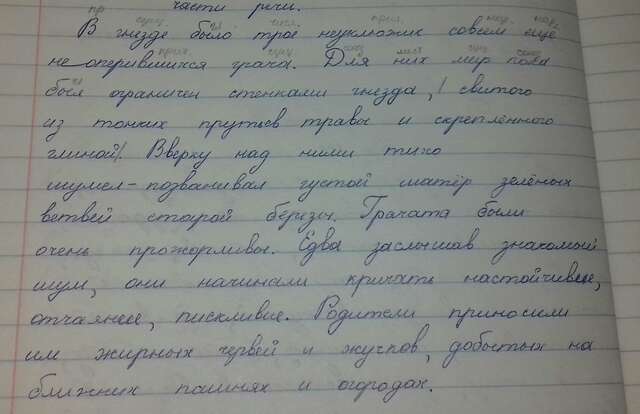 части речи.
В гнезде было трое неуклюжих совсем ещё
не оперившихся грача. Для них мир пока
был ограничен стенками гнезда, свитого
из тонких прутьев травы и скреплённого
глиной. Вверху над ними тихо
шумел-позванивал густой матёр зелёных
ветвей старой берёзы. Грачата были
очень прожорливы. Едва заслышав знакомый
шум, они начинали кричать настойчивее,
отчаянее, пискливые. Родители приносили
им жирных червей и жучков, добытых на
ближних пашнях и огородах.